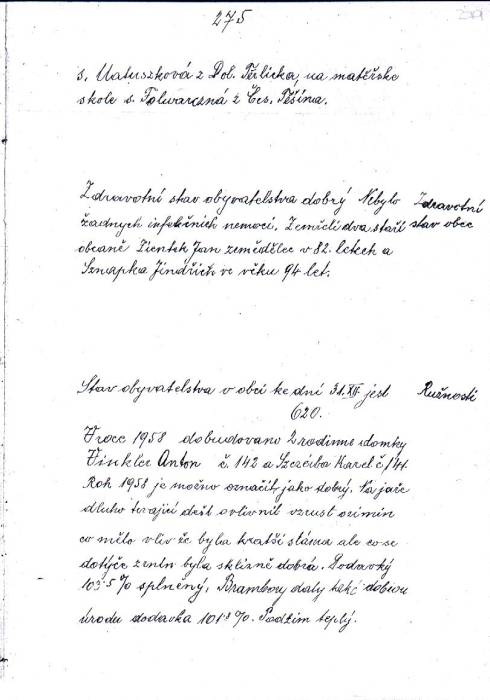 275
s. Matuszková z Dol. Těrlicka, na matěřske
skole s. Folwarczná z Čes. Těšína.
Zdravotní stav obyvatelstva dobrý Nebylo
žadnych infekčních nemocí. Zemřeli dva staří
obcaně Pientek Jan zemědělec v 82. letech a
Sznapka Jindřich ve věku 94 let.
Zdravotní
stav obce
Stav obyvatelstva v obci ke dni 31.XII. jest
620.
Ružnosti
V roce 1958 dobudovano 2 rodinne domky
Finkler Anton č. 142 a Szczerba Karel č.
Rok 1958 je možno označit jako dobrý. Na jaře
dluho trvající dešt ovlivnil vzrust ozimin
co mělo vliv že byla kratší sláma ale co se
dotýče zrnin byla sklizně dobrá. Dodavký
103·5% splněný. Brambory daly též dobrou
úrodu dodavka 101·8%. Podzim teplý.